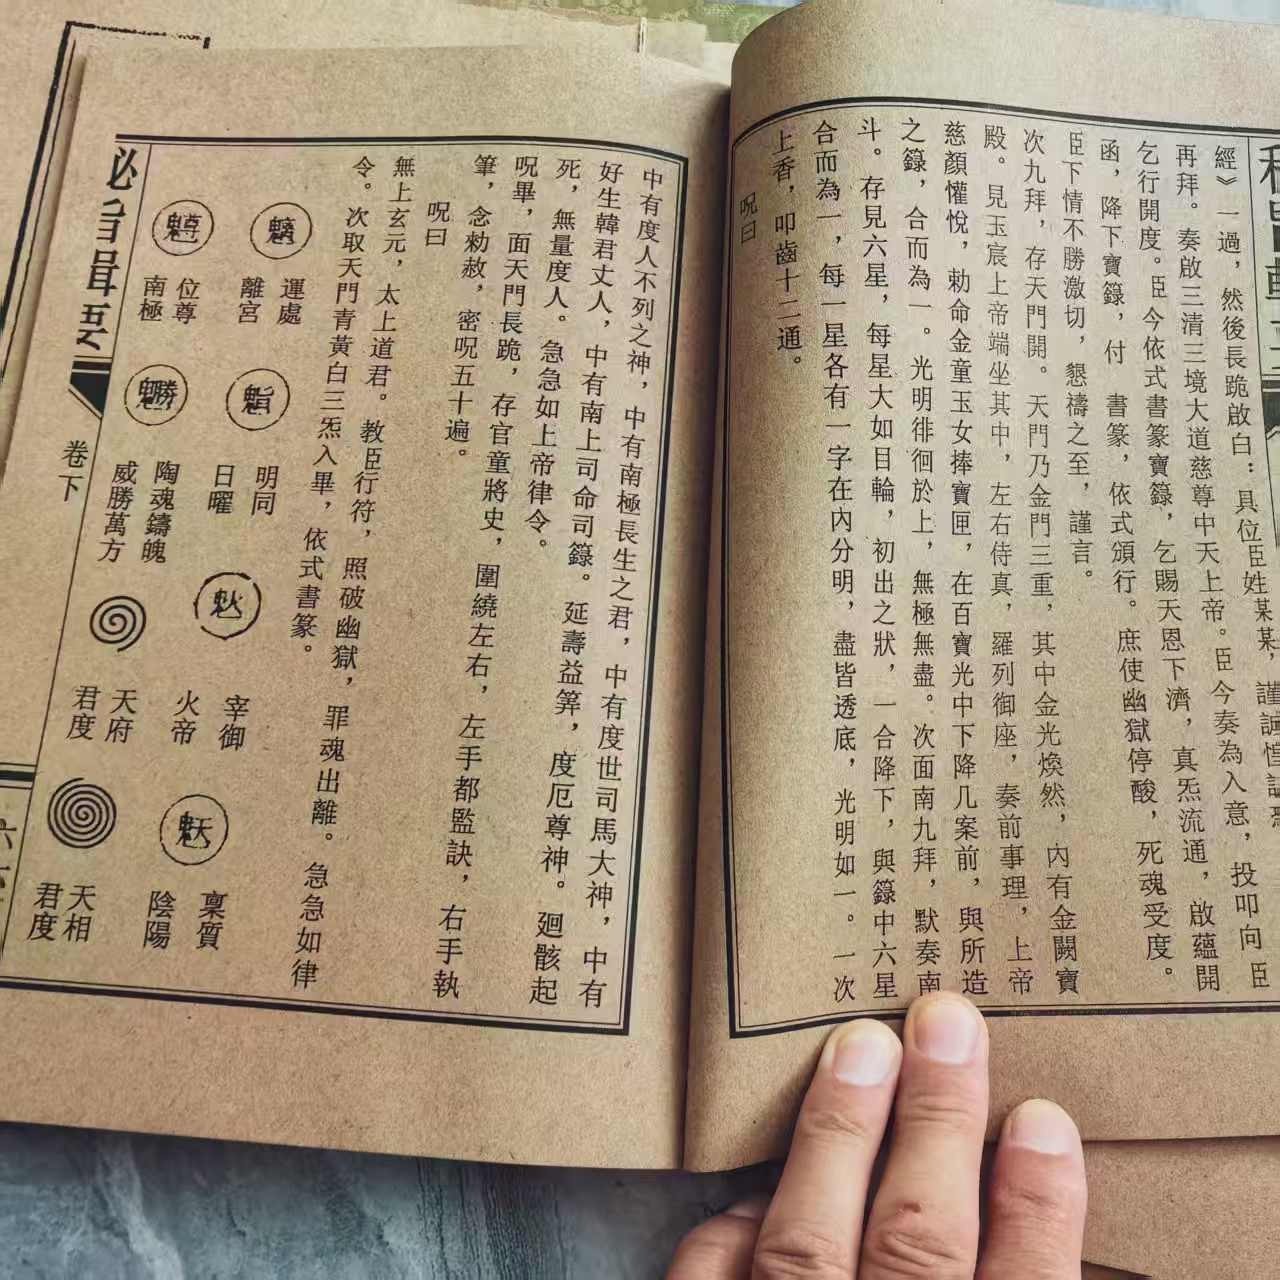 經》一過，然後長跪啟白：具位臣姓某某，謹誠惶誠恐
再拜。奏啟三清三境大道慈尊中天上帝。臣今奏為入意，投叩向臣
乞行開度。臣今依式書篆寶籙，乞賜天恩下濟，真炁流通，啟蘊開
函，降下寶籙，付　書篆，依式頒行。庶使幽獄停酸，死魂受度。
臣下情不勝激切，懇禱之至，謹言。
次九拜，存天門開。天門乃金門三重，其中金光煥然，內有金闕寶
殿。見玉宸上帝端坐其中，左右侍真，羅列御座，奏前事理，上帝
慈顏懽悅，勅命金童玉女捧寶匣，在百寶光中下降几案前，與所造
之籙，合而為一。光明徘徊於上，無極無盡。次面南九拜，默奏南
斗。存見六星，每星大如目輪，初出之狀，一合降下，與籙中六星
合而為一，每一星各有一字在內分明，盡皆透底，光明如一。一次
上香，叩齒十二通。
呪曰
中有度人不列之神，中有南極長生之君，中有度世司馬大神，中有
好生韓君丈人，中有南上司命司籙。延壽益筭，度厄尊神。廻骸起
死，無量度人。急急如上帝律令。
呪畢，面天門長跪，存官童將史，圍繞左右，左手都監訣，右手執
筆，念勅赦，密呪五十遍。
呪曰
無上玄元，太上道君。教臣行符，照破幽獄，罪魂出離。急急如律
令。次取天門青黃白三炁入畢，依式書篆。
運處
離宮
明同
日曜
宰御
火帝
魒
稟質
陰陽
位尊
南極
陶魂鑄魄
威勝萬方
天府
君度
天相
君度
卷下